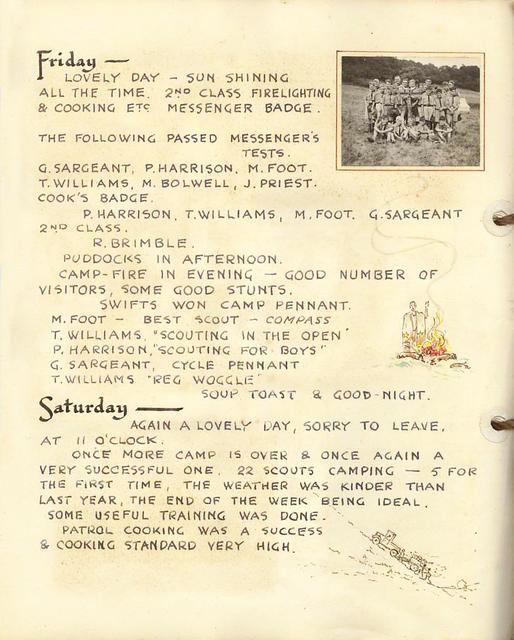 Friday —
LOVELY DAY – SUN SHINING
ALL THE TIME. 2ND CLASS FIRELIGHTING
& COOKING ETC MESSENGER BADGE.
THE FOLLOWING PASSED MESSENGER'S
TESTS.
G. SARGEANT, P. HARRISON, M. FOOT.
T. WILLIAMS, M. BOLWELL, J. PRIEST.
COOK'S BADGE.
P. HARRISON, T. WILLIAMS, M. FOOT. G. SARGEANT
2ND CLASS.
R. BRIMBLE.
PUDDOCKS IN AFTERNOON.
CAMP-FIRE IN EVENING – GOOD NUMBER OF
VISITORS, SOME GOOD STUNTS.
SWIFTS WON CAMP PENNANT.
M. FOOT – BEST SCOUT – COMPASS
T. WILLIAMS, "SCOUTING IN THE OPEN"
P. HARRISON, "SCOUTING FOR BOYS"
G. SARGEANT, CYCLE PENNANT
T. WILLIAMS "REG WOGGLE"
SOUP TOAST & GOOD-NIGHT.
Saturday —
AGAIN A LOVELY DAY, SORRY TO LEAVE,
AT 11 O'CLOCK.
ONCE MORE CAMP IS OVER & ONCE AGAIN A
VERY SUCCESSFUL ONE. 22 SCOUTS CAMPING – 5 FOR
THE FIRST TIME, THE WEATHER WAS KINDER THAN
LAST YEAR, THE END OF THE WEEK BEING IDEAL.
SOME USEFUL TRAINING WAS DONE.
PATROL COOKING WAS A SUCCESS
& COOKING STANDARD VERY HIGH.